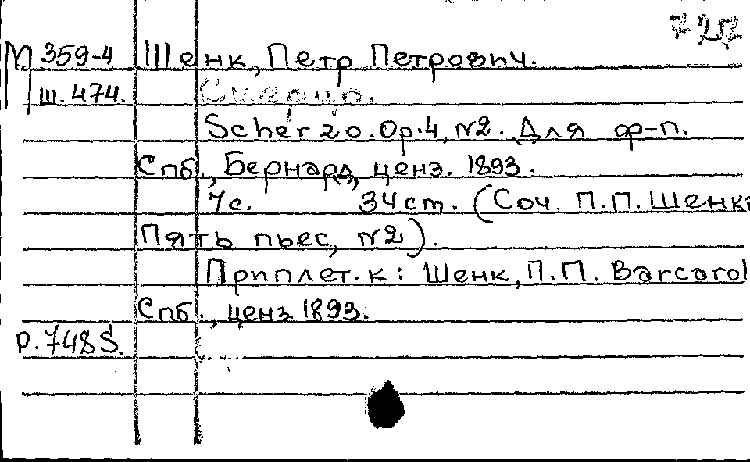 727
М 359-4 Шенк, Петр Петрович.
Ш. 474. Скерцо.
Scherzo. Op.4, N2. Для ф-п.
Спб., Бернард, ценз. 1893.
7с. 34 cm. (Соч. П.П. Шенка
Пять пьес, N2).
Приплет. к: Шенк, П.П. Barcarol
Спб., ценз. 1893.
р. 748 S.